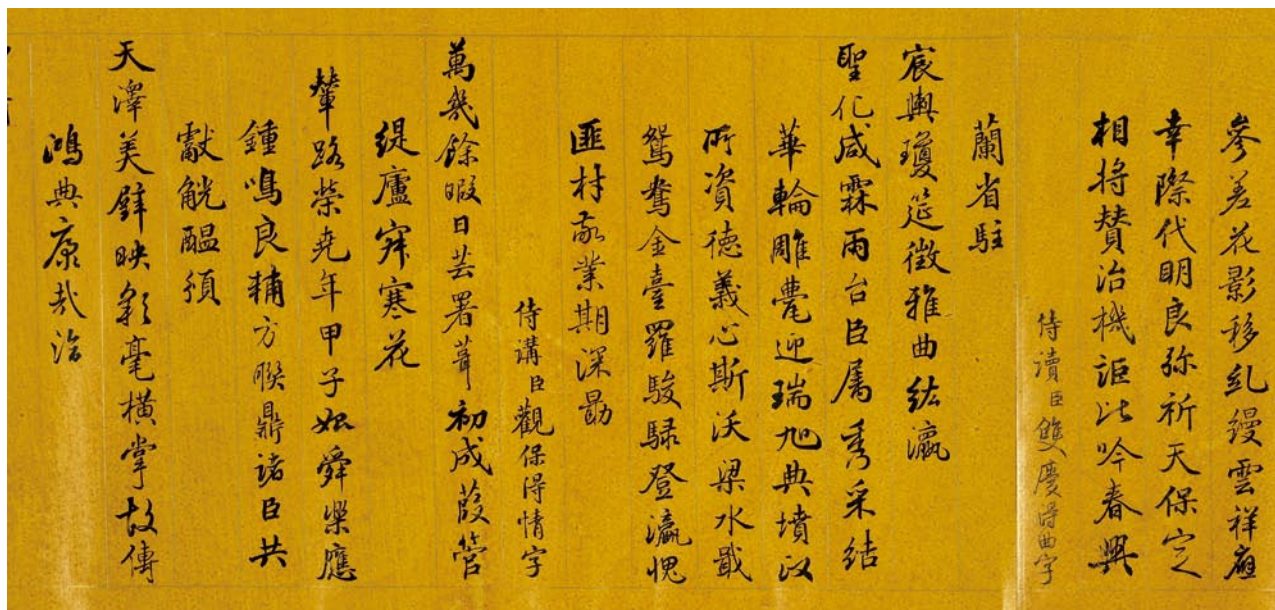 參差花影移糺縵雲祥應
幸際代明良弥祈天保定
相將賛治機詎比吟春興
侍讀臣雙慶得曲字
蘭省駐
宸輿瓊筵徵雅曲紘瀛
聖化咸霖雨台臣属秀采結
華輪雕甍迎瑞旭典墳政
所資徳義心斯沃梁水戢
鴛鴦金臺羅駿騄登瀛愧
匪材敬業期深勗
侍講臣觀保得情字
萬幾餘暇日芸署葺初成葭管
緹廬寒花
輦路榮尭年甲子始舜樂應
鍾鳴良輔方聨鼎諸臣共
獻觥醖頒
天澤美映彩毫橫掌故傳
鴻典康哉洽